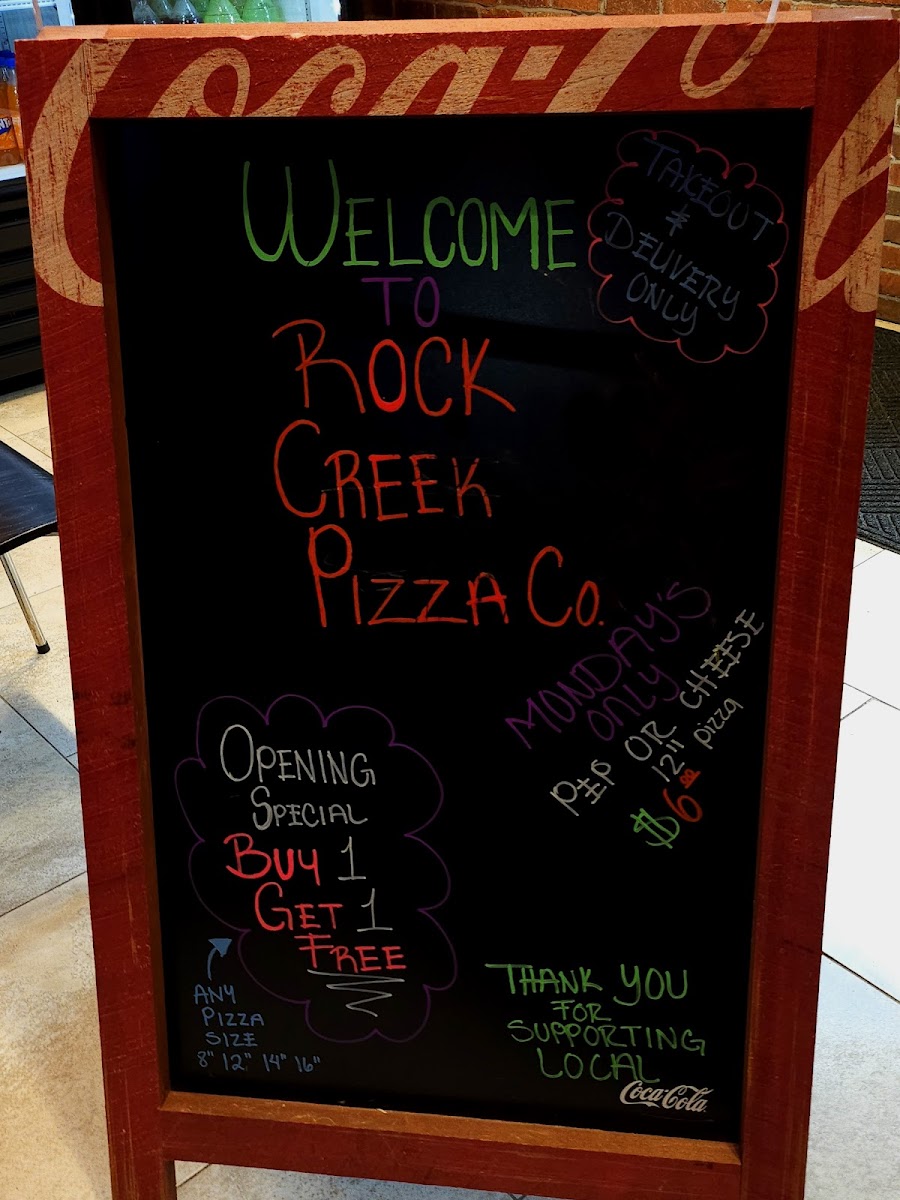 Coca-Cola
WELCOME
TO
ROCK
CREEK
PIZZA CO.
TAKEOUT
&
DELIVERY
ONLY
MONDAY'S
ONLY
PEP OR CHEESE
12" pizza
$6.00
OPENING
SPECIAL
BUY 1
GET 1
FREE
ANY
PIZZA
SIZE
8" 12" 14" 16"
THANK YOU
FOR
SUPPORTING
LOCAL
Coca-Cola